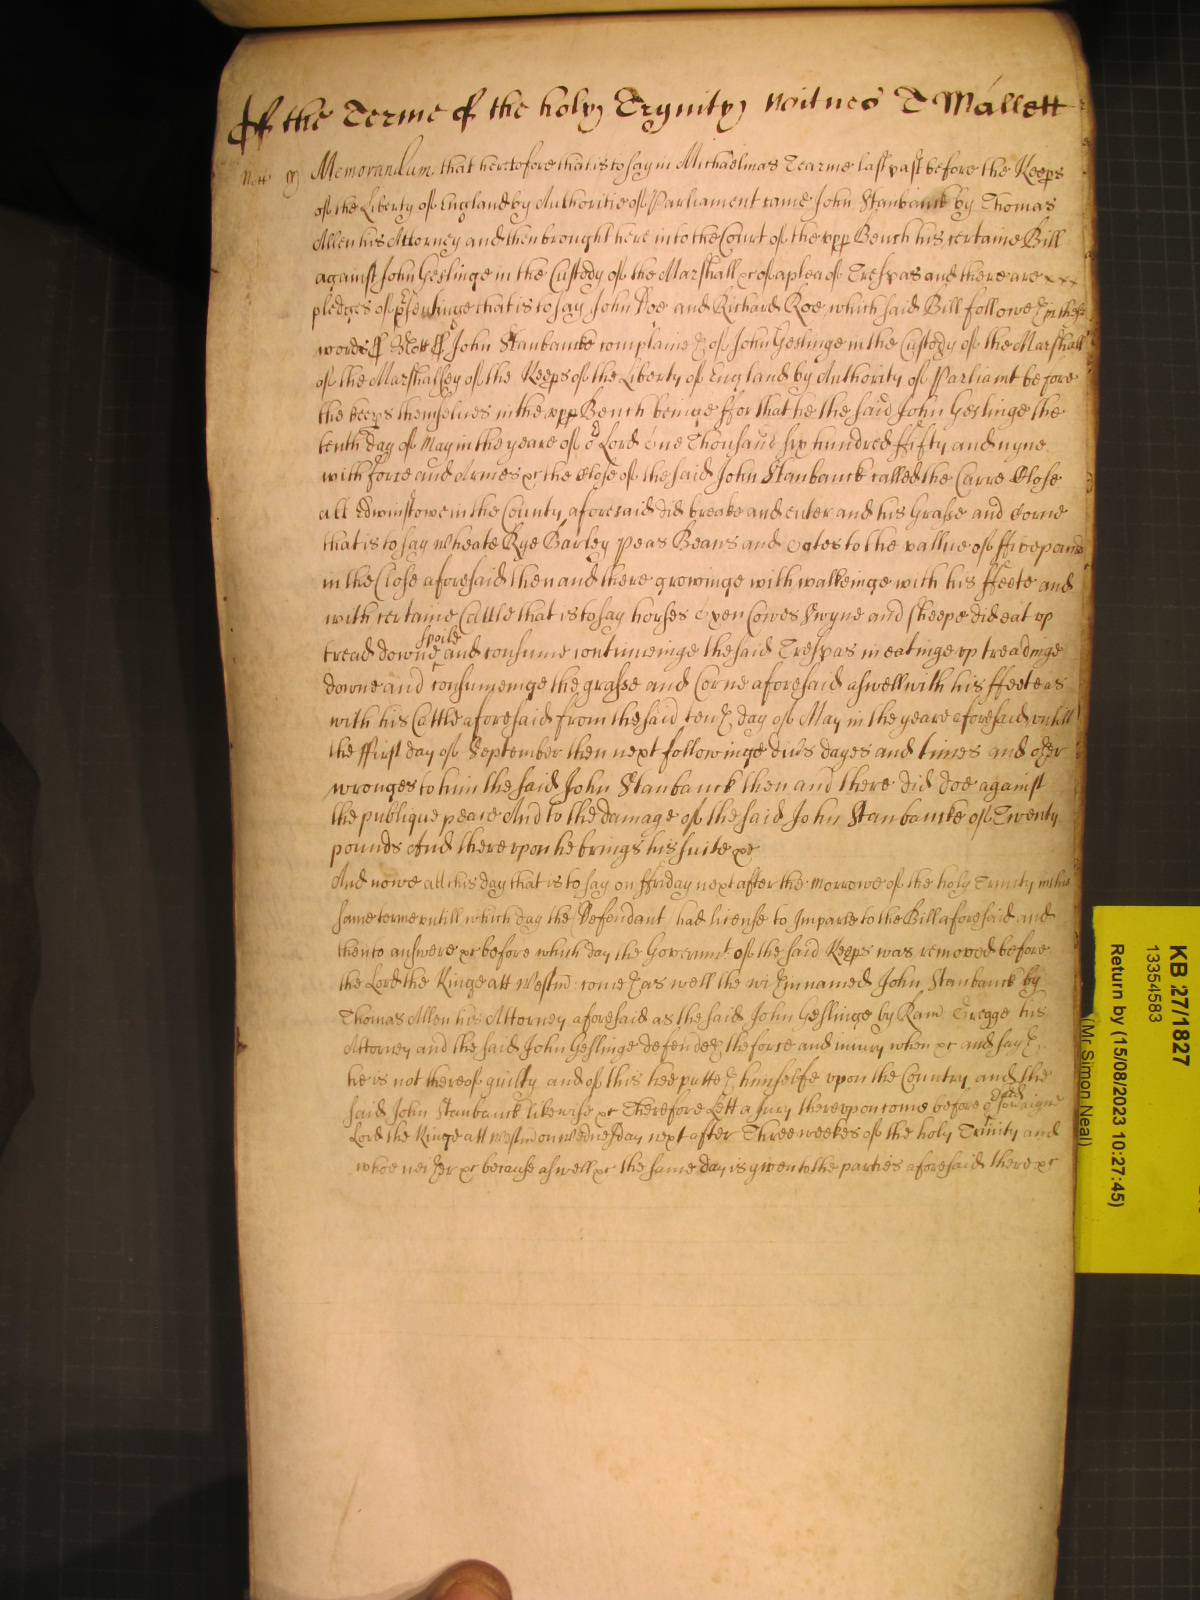 Of the Terme of the holy Trynity Witnes T Mallett
Nott ss Memorandum that heretofore that is to say in Michaelmas Tearme last past before the Keeps
of the Liberty of England by Authoritie of Parliament came John Stanbanck by Thomas
Allen his Attorney and then brought here into the Court of the upp Bench his certaine Bill
against John Geslinge in the Custody of the Marshall &c of a plea of Trespas and there are xxx
pledges of psecutinge that is to say John Doe and Richard Roe which said Bill followeth in these
words ss Nott ss John Stanbancke complaineth of John Geslinge in the Custody of the Marshall
of the Marshalsey of the Keeps of the Liberty of England by Authority of Parliamt before
the keeps themselves in the upp Bench beinge ffor that he the said John Geslinge the
tenth day of May in the yeare of or Lord one Thousand six hundred ffifty and nyne
with force and Armes &c the Close of the said John Stanbanck called the Carre Close
att Edwinstowe in the County aforesaid did breake and enter and his Grasse and Corne
that is to say Wheate Rye Barley Peas Beans and Oates to the vallue of ffive pounds
in the Close aforesaid then and there growinge with walkeinge with his ffeete and
with certaine Cattle that is to say horses Oxen Cowes Swyne and sheepe did eat up
spoile
tread downe and consume continueinge the said Trespas in eatinge up treadinge
downe and consumeinge the grasse and Corne aforesaid aswell with his ffeete as
with his Cattle aforesaid from the said tenth day of May in the yeare aforesaid untill
the ffirst day of September then next followinge divs dayes and times and other
wronges to him the said John Stanbanck then and there did doe against
the publique peace And to the damage of the said John Stanbancke of Twenty
pounds And thereupon he brings his suite &c
And nowe att this day that is to say on ffriday next after the Morrowe of the holy Trinity in this
same terme untill which day the Defendant had license to Imparle to the Bill aforesaid and
then to answere &c before which day the Governmt of the said Keeps was removed before
the Lord the Kinge att Westmr cometh as well the within named John Stanbanck by
Thomas Allen his Attorney aforesaid as the said John Geslinge by Ram Gregge his
Attorney and the said John Geslinge defendeth the force and iniury when &c and sayth
he is not thereof guilty and of this hee putteth himselfe upon the Country and the
said John Stanbanck likewise &c Therefore Lett a Jury thereupon come before or Soveraigne
Lord the Kinge att Westmr on Wednesday next after Three weekes of the holy Trinity and
whoe neither &c because aswell &c the same day is given to the parties aforesaid there &c
KB 27/1827
13354583
Return by (15/08/2023 10:27:45)
(Mr Simon Neal)